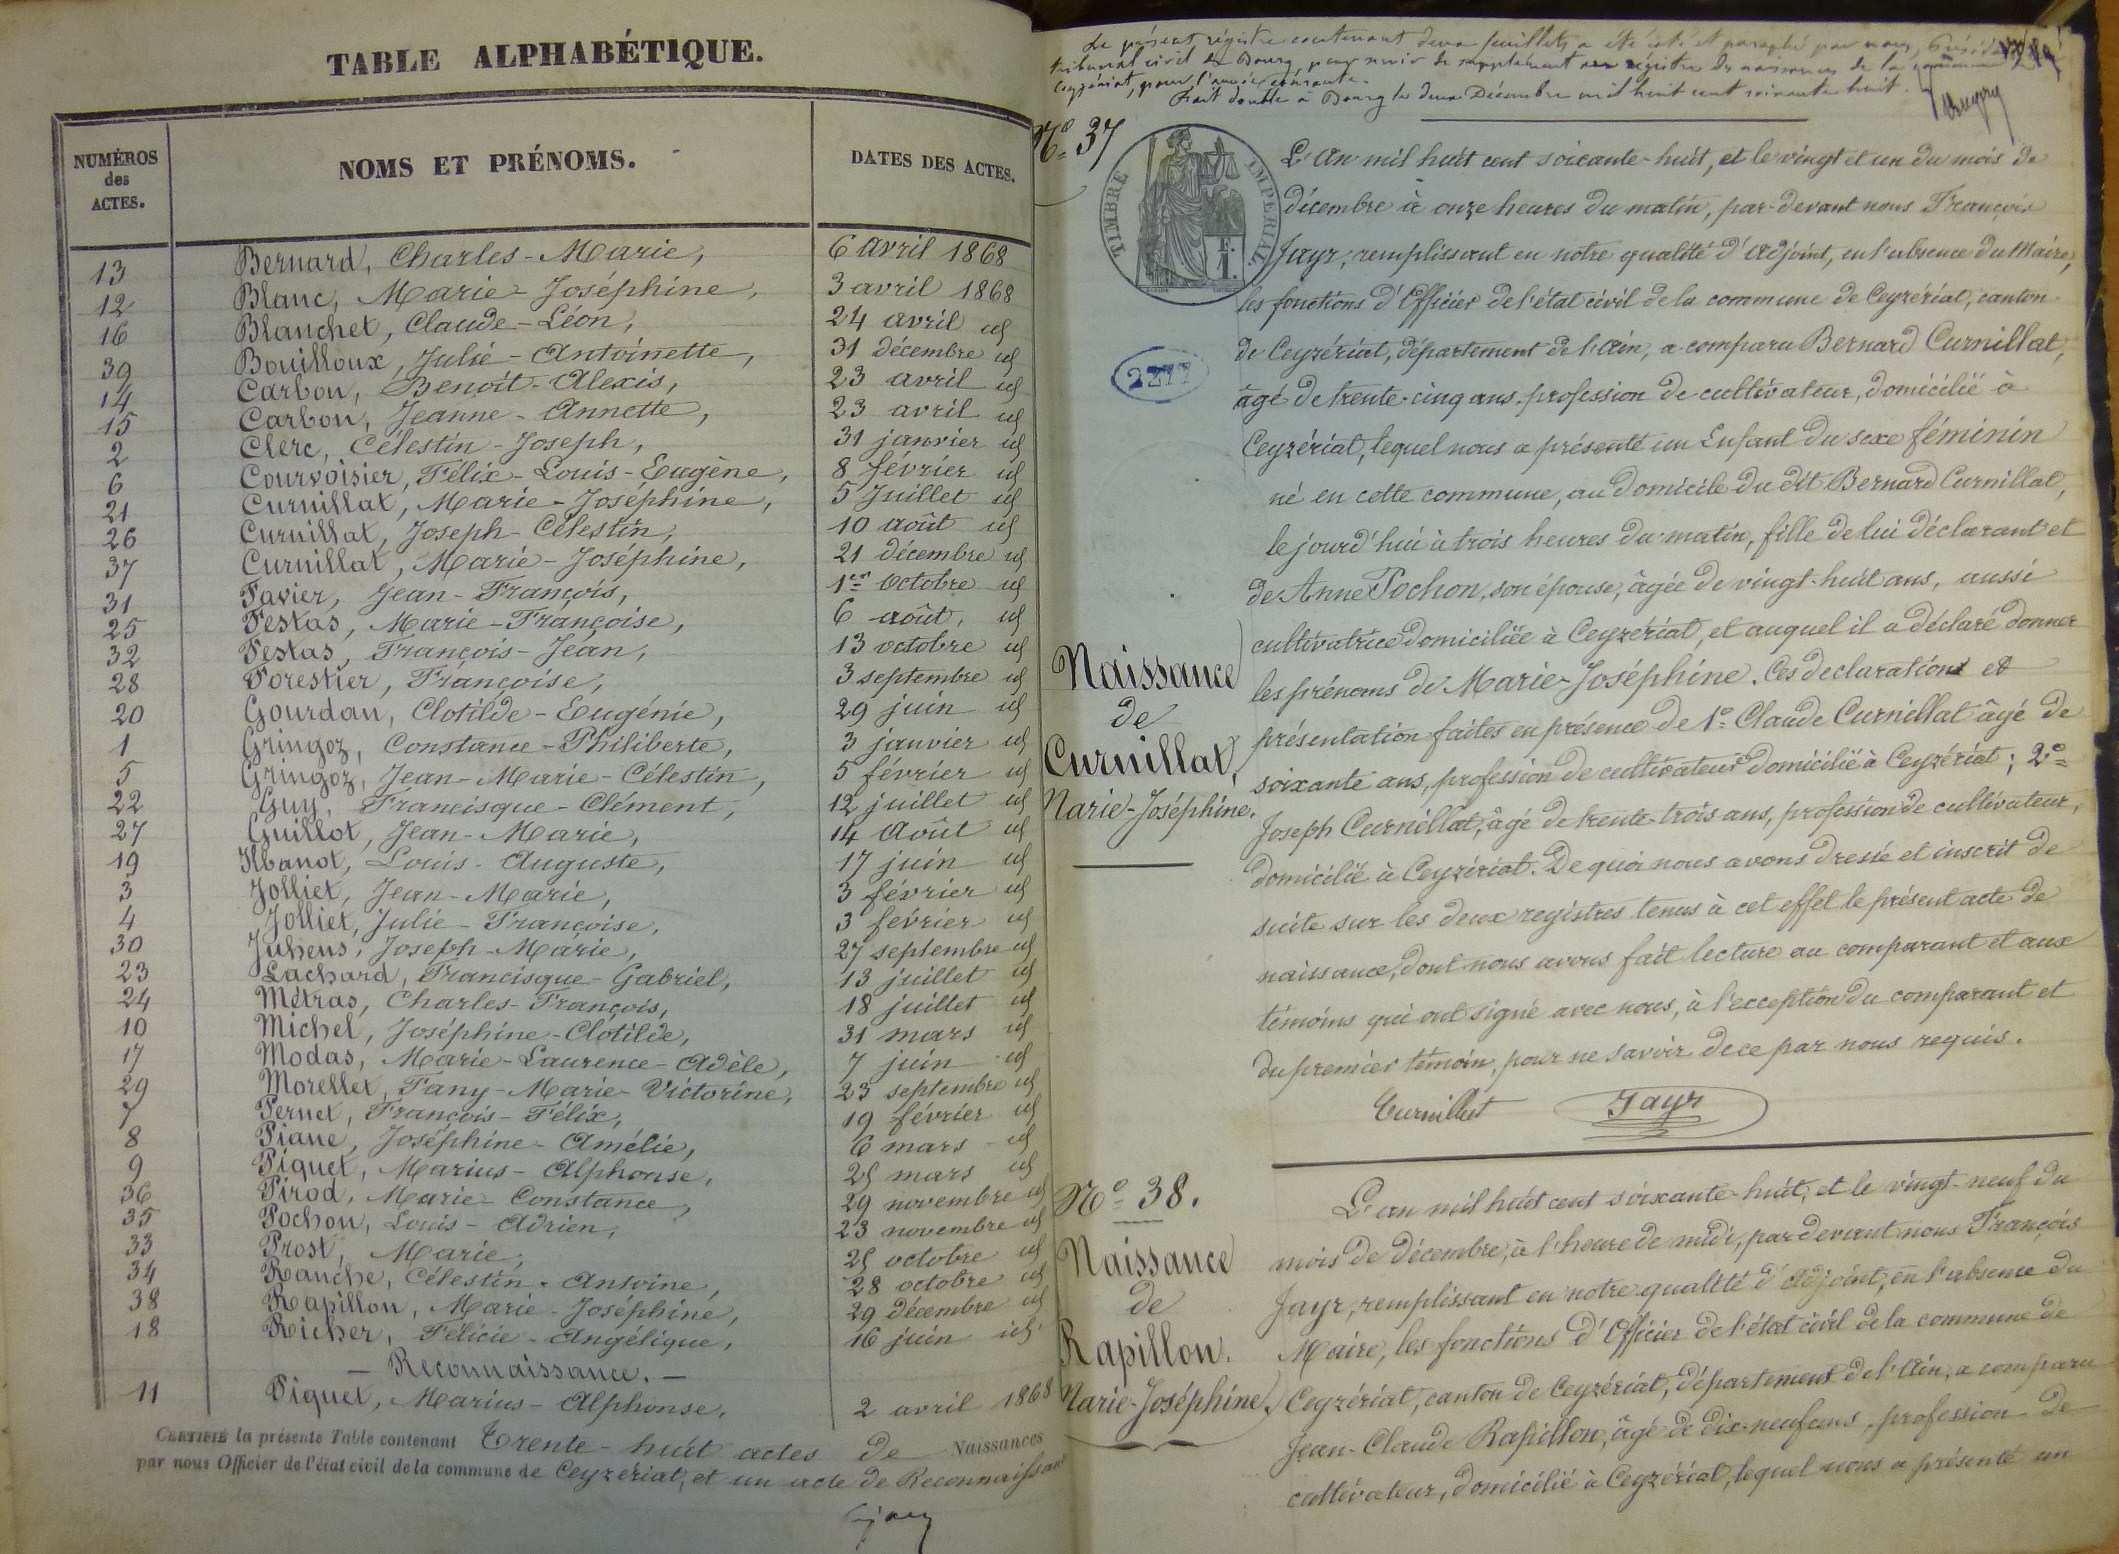 TABLE ALPHABÉTIQUE.
NUMÉROS des ACTES.
NOMS ET PRÉNOMS.
DATES DES ACTES.
13 Bernard, Charles-Marie, 6 avril 1868
12 Blanc, Marie-Joséphine, 3 avril 1868
16 Blanchet, Claude-Léon, 24 avril id
39 Bouilloux, Julie-Antoinette, 31 décembre id
14 Carbon, Benoît-Alexis, 23 avril id
15 Carbon, Jeanne-Annette, 23 avril id
2 Clerc, Célestin-Joseph, 31 janvier id
6 Courvoisier, Félix-Louis-Eugène, 8 février id
21 Curnillat, Marie-Joséphine, 5 Juillet id
26 Curnillat, Joseph-Célestin, 10 août id
37 Curnillat, Marie-Joséphine, 21 décembre id
31 Favier, Jean-François, 1er Octobre id
25 Festas, Marie-Françoise, 6 août, id
32 Festas, François-Jean, 13 octobre id
28 Forestier, Françoise, 3 septembre id
20 Gourdan, Clotilde-Eugénie, 29 juin id
1 Gringoz, Constance-Philiberte, 3 janvier id
5 Gringoz, Jean-Marie-Célestin, 5 février id
22 Guy, Francisque-Clément, 12 juillet id
27 Guillot, Jean-Marie, 14 Août id
19 Louis-Auguste, 17 juin id
3 Jolliet, Jean-Marie, 3 février id
4 Jolliet, Julie-Françoise, 3 février id
30 Joseph-Marie, 27 septembre id
23 Lachard, Francisque-Gabriel, 13 juillet id
24 Métras, Charles-François, 18 juillet id
10 Michel, Joséphine-Clotilde, 31 mars id
17 Modas, Marie-Laurence-Adèle, 7 juin id
29 Morellet, Fany-Marie-Victorine, 23 septembre id
7 Pernet, François-Félix, 19 février id
8 Piane, Joséphine-Amélie, 6 mars id
9 Piquet, Marius-Alphonse, 25 mars id
36 Pirod, Marie-Constance, 29 novembre id
35 Pochon, Louis-Adrien, 23 novembre id
33 Prost, Marie, 25 octobre id
34 Ranche, Célestin-Antoine, 28 octobre id
38 Rapillon, Marie-Joséphine, 29 décembre id
18 Richer, Félicie-Angélique, 16 juin id
— Reconnaissance. —
11 Piquet, Marius-Alphonse. 2 avril 1868
CERTIFIÉ la présente Table contenant Trente-huit actes de Naissances
par nous Officier de l'état civil de la commune de Ceyzériat, et un acte de Reconnaissance
Le présent régistre contenant deux feuillets a été coté et paraphé par nous, Président du
tribunal civil de Bourg, pour servir de supplément au registre des naissances de la commune de
Ceyzériat, pour l'année courante.
Fait double à Bourg le deux Décembre mil huit cent soixante huit.
No 37
TIMBRE IMPÉRIAL
2277
L'An mil huit cent soixante-huit, et le vingt et un du mois de
décembre à onze heures du matin, par-devant nous François
Jayr, remplissant en notre qualité d'Adjoint, en l'absence du Maire,
les fonctions d'Officier de l'état civil de la commune de Ceyzériat, canton
de Ceyzériat, département de l'Ain, a comparu Bernard Curnillat,
âgé de trente-cinq ans, profession de cultivateur, domicilié à
Ceyzériat, lequel nous a présenté un Enfant du sexe féminin
né en cette commune, au domicile du dit Bernard Curnillat,
le jourd'hui à trois heures du matin, fille de lui déclarant et
de Anne Pochon, son épouse, âgée de vingt-huit ans, aussi
cultivatrice domiciliée à Ceyzériat, et auquel il a déclaré donner
les prénoms de Marie-Joséphine. Ces declarations et
présentation faites en présence de 1o Claude Curnillat âgé de
soixante ans, profession de cultivateur domicilié à Ceyzériat; 2o
Joseph Curnillat, âgé de trente-trois ans, profession de cultivateur,
domicilié à Ceyzériat. De quoi nous avons dressé et inscrit de
suite sur les deux registres tenus à cet effet le présent acte de
naissance, dont nous avons fait lecture au comparant et aux
témoins qui ont signé avec nous, à l'exception du comparant et
du premier témoin, pour ne savoir de ce par nous requis.
Naissance
de
Curnillat,
Marie-Joséphine.
Curnillat Jayr
No 38.
Naissance
de
Rapillon.
Marie-Joséphine.
L'an mil huit cent soixante-huit, et le vingt-neuf du
mois de décembre, à l'heure de midi, par devant nous François
Jayr, remplissant en notre qualité d'Adjoint, en l'absence du
Maire, les fonctions d'Officier de l'état civil de la commune de
Ceyzériat, canton de Ceyzériat, département de l'Ain, a comparu
Jean-Claude Rapillon, âgé de dix-neuf ans, profession de
cultivateur, domicilié à Ceyzériat, lequel nous a présenté un